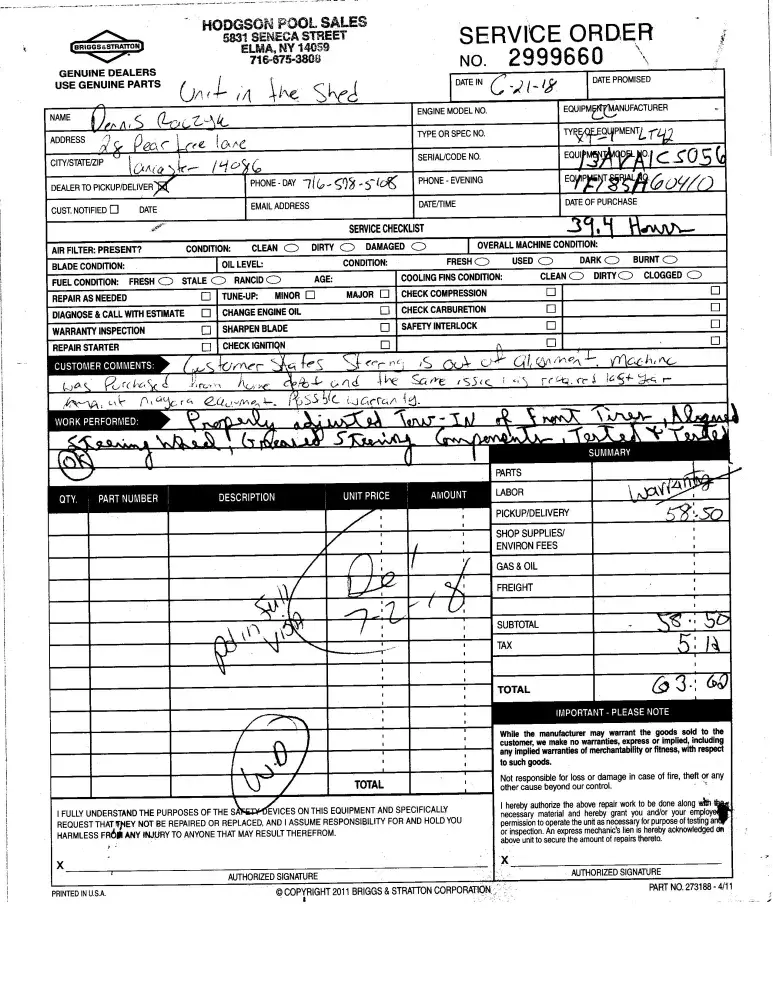 HODGSON POOL SALES
5831 SENECA STREET
ELMA, NY 14059
716-675-3808
BRIGGS & STRATTON
GENUINE DEALERS
USE GENUINE PARTS
Unit in the Shed
SERVICE ORDER
NO. 2999660
DATE IN 6-21-18 DATE PROMISED
NAME Dennis Raczyk
ENGINE MODEL NO.
EQUIPMENT MANUFACTURER
ADDRESS 28 Pear tree lane
TYPE OR SPEC NO.
TYPE OF EQUIPMENT LT42
CITY/STATE/ZIP Lancaster 14086
SERIAL/CODE NO.
EQUIPMENT MODEL NO. 13AVA1CS056
DEALER TO PICKUP/DELIVER
PHONE - DAY 716-598-5108
PHONE - EVENING
EQUIPMENT SERIAL NO. 1F185HG0410
CUST. NOTIFIED DATE
EMAIL ADDRESS
DATE/TIME
DATE OF PURCHASE
SERVICE CHECKLIST 39.4 Hours
AIR FILTER: PRESENT? CONDITION: CLEAN DIRTY DAMAGED OVERALL MACHINE CONDITION:
BLADE CONDITION: OIL LEVEL: CONDITION: FRESH USED DARK BURNT
FUEL CONDITION: FRESH STALE RANCID AGE: COOLING FINS CONDITION: CLEAN DIRTY CLOGGED
REPAIR AS NEEDED TUNE-UP: MINOR MAJOR CHECK COMPRESSION
DIAGNOSE & CALL WITH ESTIMATE CHANGE ENGINE OIL CHECK CARBURETION
WARRANTY INSPECTION SHARPEN BLADE SAFETY INTERLOCK
REPAIR STARTER CHECK IGNITION
CUSTOMER COMMENTS: Customer States Steering is out of alignment. Machine
was Purchased from home depot and the Same issue was repaired last year
at niagara equipment. Possble warranty.
WORK PERFORMED: Properly adjusted Tow-IN of Front Tires, Aligned
Steering Wheel, Greased Steering Components, Tested & Tested
OK
SUMMARY
QTY. PART NUMBER DESCRIPTION UNIT PRICE AMOUNT
PARTS
LABOR warranty
PICKUP/DELIVERY 58.50
SHOP SUPPLIES/
ENVIRON FEES
GAS & OIL
FREIGHT
SUBTOTAL 58.50
TAX 5.12
TOTAL 63.62
Del
7-2-18
pd in full
visa
WO
TOTAL
IMPORTANT - PLEASE NOTE
While the manufacturer may warrant the goods sold to the
customer, we make no warranties, express or implied, including
any implied warranties of merchantability or fitness, with respect
to such goods.
Not responsible for loss or damage in case of fire, theft or any
other cause beyond our control.
I hereby authorize the above repair work to be done along with the
necessary material and hereby grant you and/or your employees
permission to operate the unit as necessary for purpose of testing and/
or inspection. An express mechanic's lien is hereby acknowledged on
above unit to secure the amount of repairs thereto.
I FULLY UNDERSTAND THE PURPOSES OF THE SAFETY DEVICES ON THIS EQUIPMENT AND SPECIFICALLY
REQUEST THAT THEY NOT BE REPAIRED OR REPLACED, AND I ASSUME RESPONSIBILITY FOR AND HOLD YOU
HARMLESS FROM ANY INJURY TO ANYONE THAT MAY RESULT THEREFROM.
X
AUTHORIZED SIGNATURE
X
AUTHORIZED SIGNATURE
PRINTED IN U.S.A.
© COPYRIGHT 2011 BRIGGS & STRATTON CORPORATION
PART NO. 273188 - 4/11